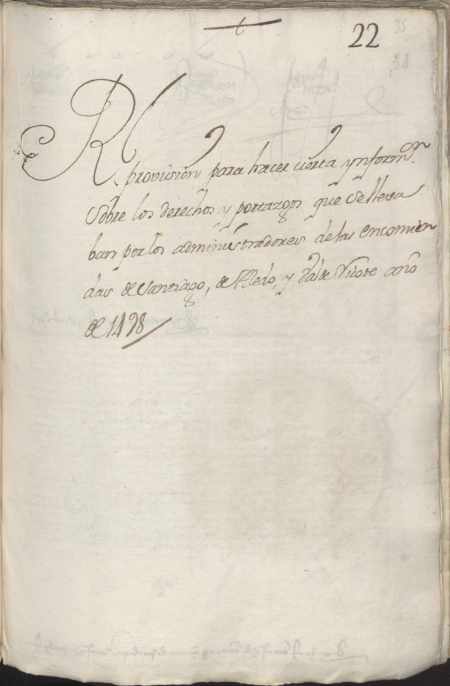 22
Rl
provission para hacer cierta ynformon
Sobre los derechos y portazgos que se lleva
ban por los administradores de las encomien
das de Santiago, de Aledo, y Val de Ricote año
de 1498